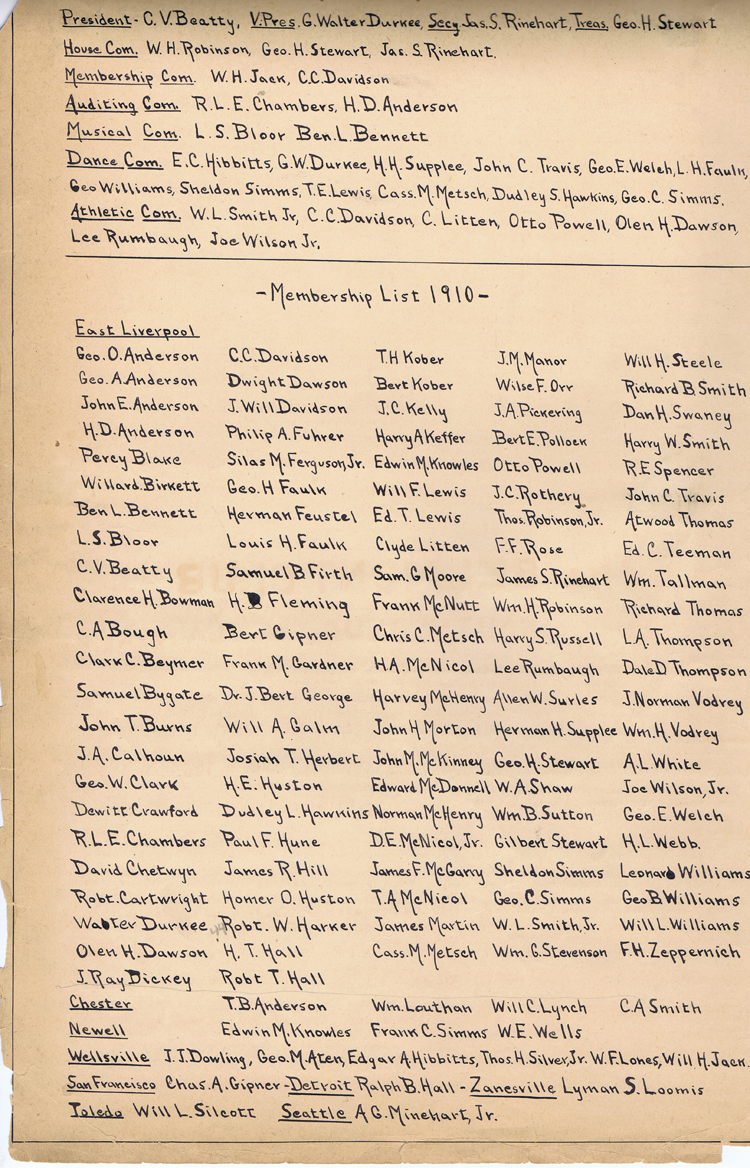 President - C.V. Beatty, V.Pres. G. Walter Durkee, Seccy Jas. S. Rinehart, Treas. Geo. H. Stewart
House Com. W.H. Robinson, Geo. H. Stewart, Jas. S. Rinehart.
Membership Com. W.H. Jack, C.C. Davidson
Auditing Com. R.L.E. Chambers, H.D. Anderson
Musical Com. L.S. Bloor Ben. L. Bennett
Dance Com. E.C. Hibbitts, G.W. Durkee, H.H. Supplee, John C. Travis, Geo. E. Welch, L.H. Faulk,
Geo Williams, Sheldon Simms, T.E. Lewis, Cass. M. Metsch, Dudley S. Hawkins, Geo. C. Simms.
Athletic Com. W.L. Smith Jr, C.C. Davidson, C. Litten, Otto Powell, Olen H. Dawson,
Lee Rumbaugh, Joe Wilson Jr.
- Membership List 1910 -
East Liverpool
Geo. O. Anderson C.C. Davidson T.H Kober J.M. Manor Will H. Steele
Geo. A. Anderson Dwight Dawson Bert Kober Wilse F. Orr Richard B. Smith
John E. Anderson J. Will Davidson J.C. Kelly J.A. Pickering Dan H. Swaney
H.D. Anderson Philip A. Fuhrer Harry A Keffer Bert E. Pollock Harry W. Smith
Percy Blake Silas M. Ferguson, Jr. Edwin M. Knowles Otto Powell R.E Spencer
Willard. Birkett Geo. H Faulk Will F. Lewis J.C. Rothery John C. Travis
Ben L. Bennett Herman Feustel Ed. T. Lewis Thos. Robinson, Jr. Atwood Thomas
L.S. Bloor Louis H. Faulk Clyde Litten F.F. Rose Ed. C. Teeman
C.V. Beatty Samuel B Firth Sam. G Moore James S. Rinehart Wm. Tallman
Clarence H. Bowman H. B Fleming Frank McNutt Wm. H. Robinson Richard Thomas
C.A Bough Bert Gipner Chris C. Metsch Harry S. Russell L.A. Thompson
Clark C. Beymer Frank M. Gardner H.A. McNicol Lee Rumbaugh Dale D Thompson
Samuel Bygate Dr. J. Bert George Harvey McHenry Allen W. Surles J. Norman Vodrey
John T. Burns Will A. Galm John H Morton Herman H. Supplee Wm. H. Vodrey
J.A. Calhoun Josiah T. Herbert John M. McKinney Geo. H. Stewart A.L. White
Geo. W. Clark H.E. Huston Edward McDonnell W.A Shaw Joe Wilson, Jr.
Dewitt Crawford Dudley L. Hawkins Norman McHenry Wm. B. Sutton Geo. E. Welch
R.L.E. Chambers Paul F. Hune D.E. McNicol, Jr. Gilbert Stewart H.L. Webb.
David Chetwyn James R. Hill James F. McGarry Sheldon Simms Leonard Williams
Robt. Cartwright Homer O. Huston T.A McNicol Geo. C. Simms Geo B Williams
Walter Durkee Robt. W. Harker James Martin W.L. Smith, Jr. Will L. Williams
Olen H. Dawson H.T. Hall Cass. M. Metsch Wm. G. Stevenson F.H. Zeppernich
J. Ray Dickey Robt T. Hall
Chester T.B. Anderson Wm. Louthan Will C. Lynch C.A Smith
Newell Edwin M. Knowles Frank C. Simms W.E. Wells
Wellsville J.J. Dowling, Geo. M. Aten, Edgar A. Hibbitts, Thos. H. Silver, Jr. W.F. Lones, Will H. Jack.
San Francisco Chas. A. Gipner - Detroit Ralph B. Hall - Zanesville Lyman S. Loomis
Toledo Will L. Silcott Seattle A.G. Minehart, Jr.